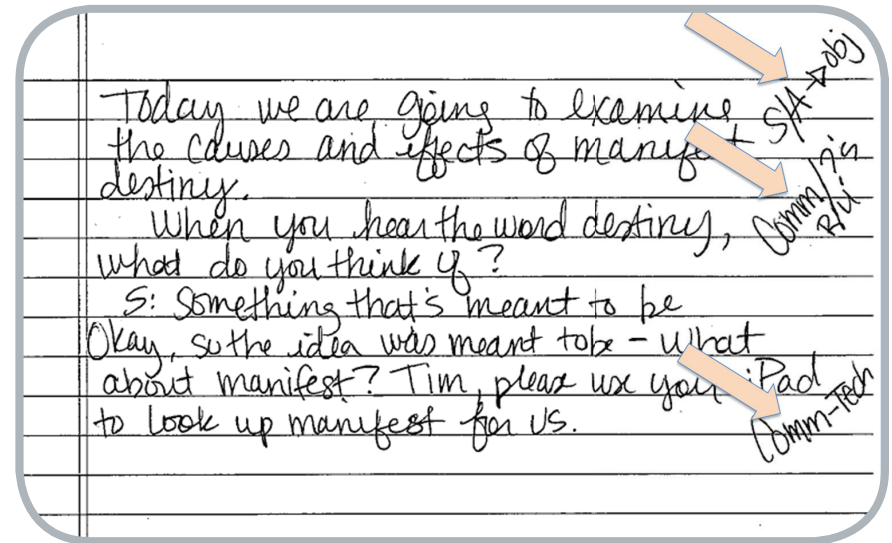 Today we are going to examine
the causes and effects of manifest
destiny.
When you hear the word destiny,
what do you think of?
S: Something that's meant to be
Okay, so the idea was meant to be - What
about manifest? Tim, please use your iPad
to look up manifest for us.
S/A → obj
Comm/?'s
Comm-Tech